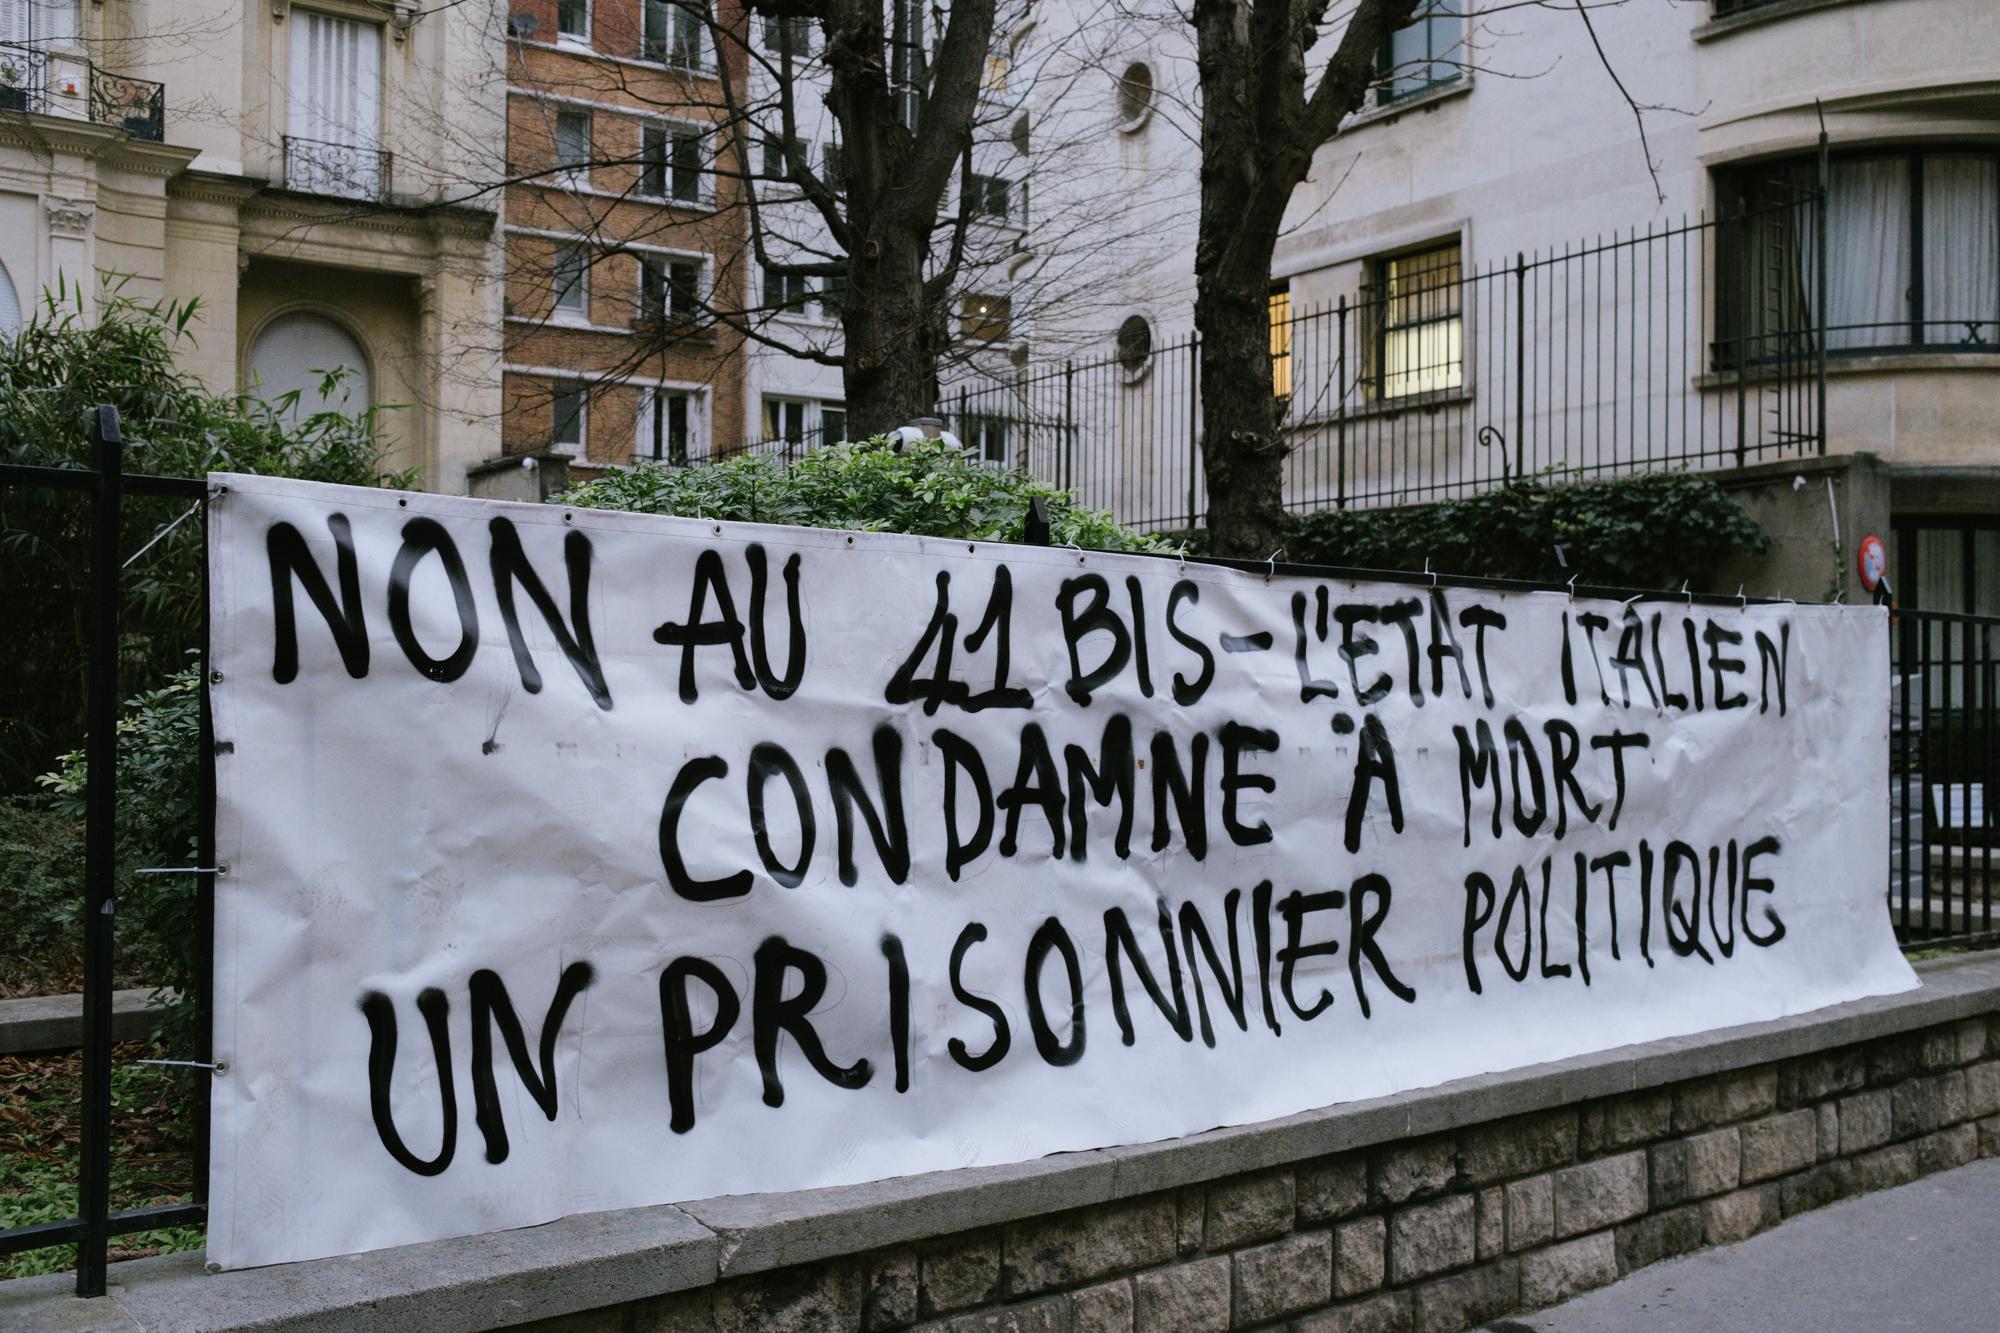 NON AU 41 BIS-L'ETAT ITALIEN
CONDAMNE À MORT
UN PRISONNIER POLITIQUE